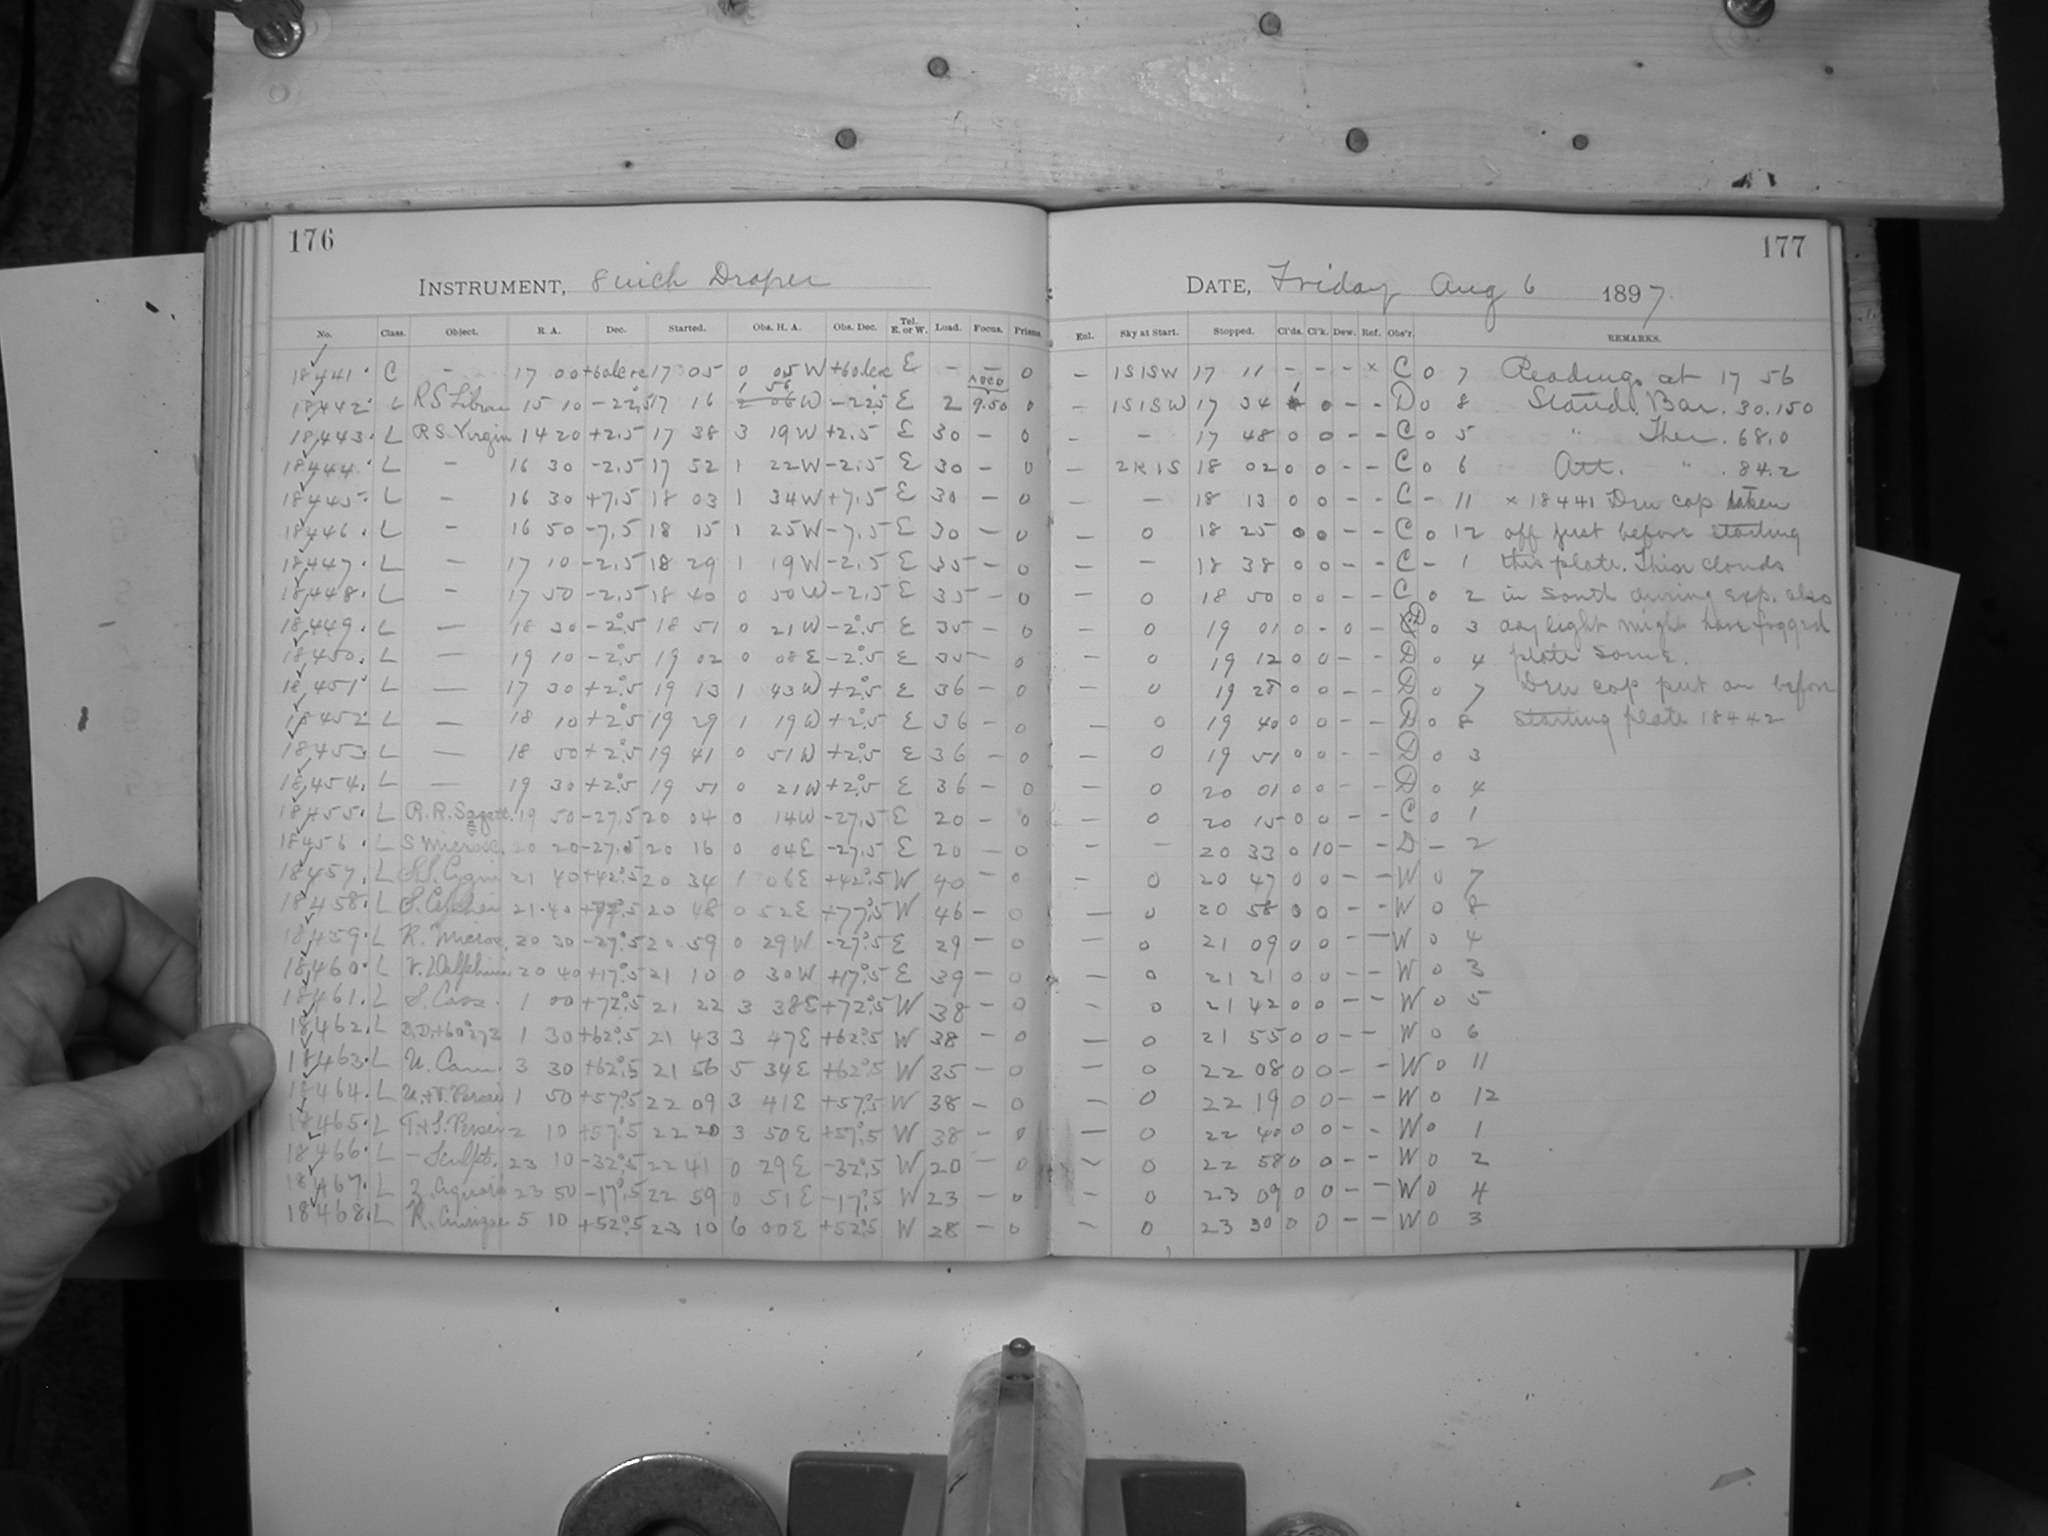 176
177
INSTRUMENT, 8 inch Draper
DATE, Friday Aug 6 1897.
No. Class. Object. R. A. Dec. Started. Obs. H. A. Obs. Dec. Tel. E. or W. Load. Focus. Prisms.
Enl. Sky at Start. Stopped. Cl'ds. Cl'k. Dew. Ref. Obs'r. REMARKS.
18441. C - 17 00 17 05 0 05 W E - - 0 - 1S1SW 17 11 - - - × C 0 7 Readings at 17 56
18442. L RS Librae 15 10 -22.5 17 16 1 56 W -22.5 E 2 9.50 0 - 1S1SW 17 34 0 - - D 0 8 Stand. Bar. 30.150
18443. L RS Virgin 14 20 +2.5 17 38 3 19 W +2.5 E 30 - 0 - - 17 48 0 0 - - C 0 5 " Ther. 68.0
18444. L - 16 30 -2.5 17 52 1 22 W -2.5 E 30 - 0 - 2K1S 18 02 0 0 - - C 0 6 Att. " . 84.2
18445. L - 16 30 +7.5 18 03 1 34 W +7.5 E 30 - 0 - 18 13 0 0 - - C - 11 × 18441 Dew cap taken
18446. L - 16 50 -7.5 18 15 1 25 W -7.5 E 30 - 0 - 0 18 25 0 0 - - C 0 12 off just before starting
18447. L - 17 10 -2.5 18 29 1 19 W -2.5 E 35 - 0 - - 18 38 0 0 - - C - 1 this plate. Thin clouds
18448. L - 17 50 -2.5 18 40 0 50 W -2.5 E 35 - 0 - 0 18 50 0 0 - - C 0 2 in South during exp. also
18449. L - 18 30 -2°.5 18 51 0 21 W -2°.5 E 35 - 0 - 0 19 01 0 - 0 - D 0 3 daylight might have fogged
18450. L - 19 10 -2°.5 19 02 0 08 E -2°.5 E 35 - 0 - 0 19 12 0 0 - - D 0 4 plate some.
18451. L - 17 30 +2°.5 19 13 1 43 W +2°.5 E 36 - 0 - 0 19 28 0 0 - - D 0 7 Dew cap put on before
18452. L - 18 10 +2°.5 19 29 1 19 W +2°.5 E 36 - 0 - 0 19 40 0 0 - - D 0 8 starting plate 18442
18453 L - 18 50 +2°.5 19 41 0 51 W +2°.5 E 36 - 0 - 0 19 51 0 0 - - D 0 3
18454. L - 19 30 +2°.5 19 51 0 21 W +2°.5 E 36 - 0 - 0 20 01 0 0 - - D 0 4
18455. L R.R. Sagitt. 19 50 -27.5 20 04 0 14 W -27.5 E 20 - 0 - 0 20 15 0 0 - - C 0 1
18456. L S Microsc. 20 20 -27.5 20 16 0 04 E -27.5 E 20 - 0 - - 20 33 0 10 - - D - 2
18457. L S.S. Cygni 21 40 +42°.5 20 34 1 06 E +42°.5 W 40 - 0 - 0 20 47 0 0 - - W 0 7
18458. L S. Cephei 21.40 +77°.5 20 48 0 52 E +77°.5 W 46 - 0 - 0 20 58 0 0 - - W 0 8
18459. L R. Microsc. 20 30 -27°.5 20 59 0 29 W -27°.5 E 29 - 0 - 0 21 09 0 0 - - W 0 4
18460. L V. Delphini 20 40 +17°.5 21 10 0 30 W +17°.5 E 39 - 0 - 0 21 21 0 0 - - W 0 3
18461. L S. Cass. 1 00 +72°.5 21 22 3 38 E +72°.5 W 38 - 0 - 0 21 42 0 0 - - W 0 5
18462. L B.D.+60°273 1 30 +62°.5 21 43 3 47 E +62°.5 W 38 - 0 - 0 21 55 0 0 - - W 0 6
18463. L U. Cam. 3 30 +62°.5 21 56 5 34 E +62°.5 W 35 - 0 - 0 22 08 0 0 - - W 0 11
18464. L U.+V. Persei 1 50 +57°.5 22 09 3 41 E +57°.5 W 38 - 0 - 0 22 19 0 0 - - W 0 12
18465. L T.+S. Persei 2 10 +57°.5 22 20 3 50 E +57°.5 W 38 - 0 - 0 22 40 0 0 - - W 0 1
18466. L - Sculpt. 23 10 -32°.5 22 41 0 29 E -32°.5 W 20 - 0 - 0 22 58 0 0 - - W 0 2
18467. L Z. Aquarii 23 50 -17°.5 22 59 0 51 E -17°.5 W 23 - 0 - 0 23 09 0 0 - - W 0 4
18468. L R. Aurigae 5 10 +52°.5 23 10 6 00 E +52°.5 W 28 - 0 - 0 23 30 0 0 - - W 0 3